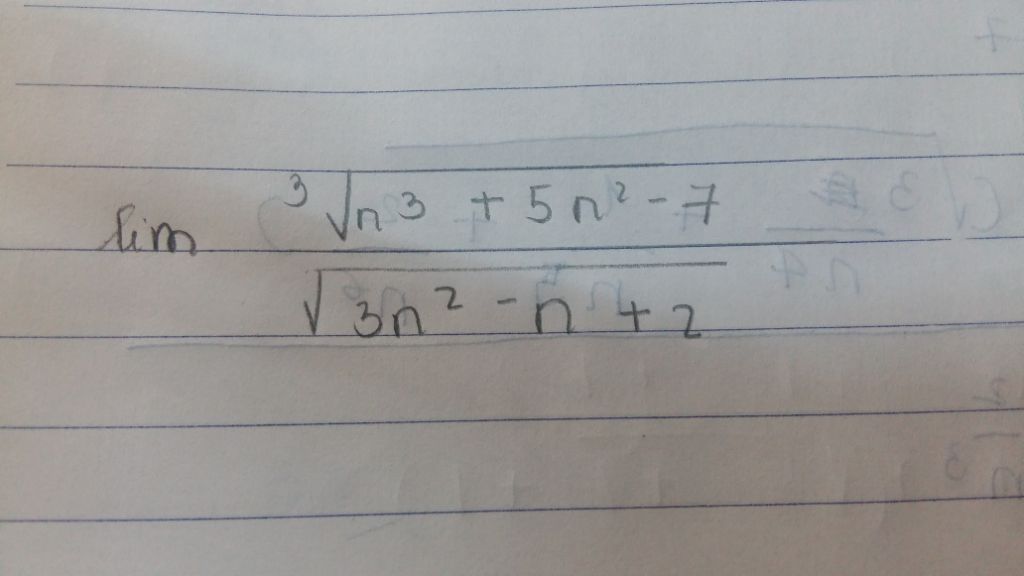 lim ³√(n³ + 5n² - 7)
√(3n² - n + 2)